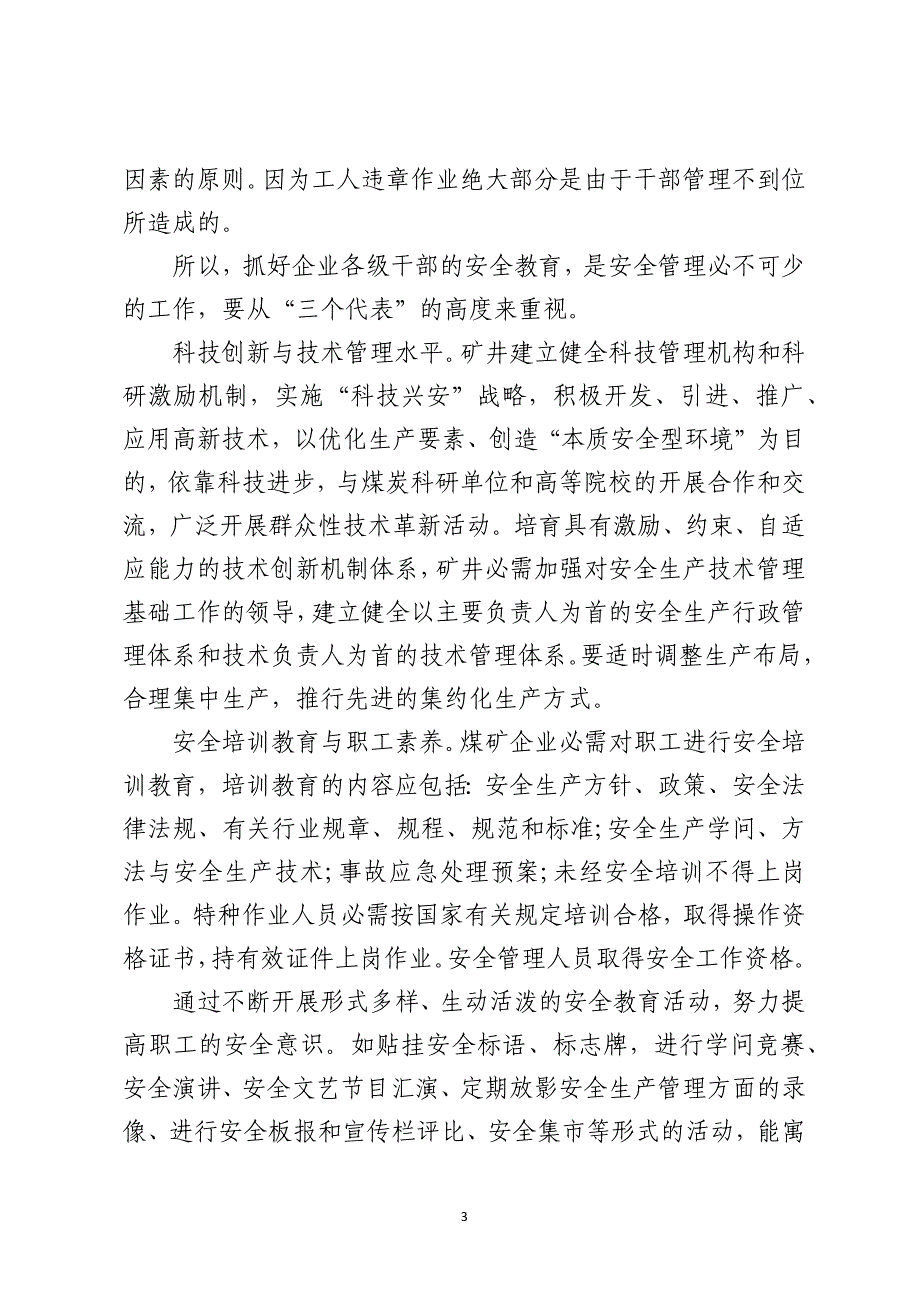 因素的原则。因为工人违章作业绝大部分是由于干部管理不到位
所造成的。
所以，抓好企业各级干部的安全教育，是安全管理必不可少
的工作，要从“三个代表”的高度来重视。
科技创新与技术管理水平。矿井建立健全科技管理机构和科
研激励机制，实施“科技兴安”战略，积极开发、引进、推广、
应用高新技术，以优化生产要素、创造“本质安全型环境”为目
的，依靠科技进步，与煤炭科研单位和高等院校的开展合作和交
流，广泛开展群众性技术革新活动。培育具有激励、约束、自适
应能力的技术创新机制体系，矿井必需加强对安全生产技术管理
基础工作的领导，建立健全以主要负责人为首的安全生产行政管
理体系和技术负责人为首的技术管理体系。要适时调整生产布局，
合理集中生产，推行先进的集约化生产方式。
安全培训教育与职工素养。煤矿企业必需对职工进行安全培
训教育，培训教育的内容应包括：安全生产方针、政策、安全法
律法规、有关行业规章、规程、规范和标准；安全生产学问、方
法与安全生产技术；事故应急处理预案；未经安全培训不得上岗
作业。特种作业人员必需按国家有关规定培训合格，取得操作资
格证书，持有效证件上岗作业。安全管理人员取得安全工作资格。
通过不断开展形式多样、生动活泼的安全教育活动，努力提
高职工的安全意识。如贴挂安全标语、标志牌，进行学问竞赛、
安全演讲、安全文艺节目汇演、定期放影安全生产管理方面的录
像、进行安全板报和宣传栏评比、安全集市等形式的活动，能寓
3